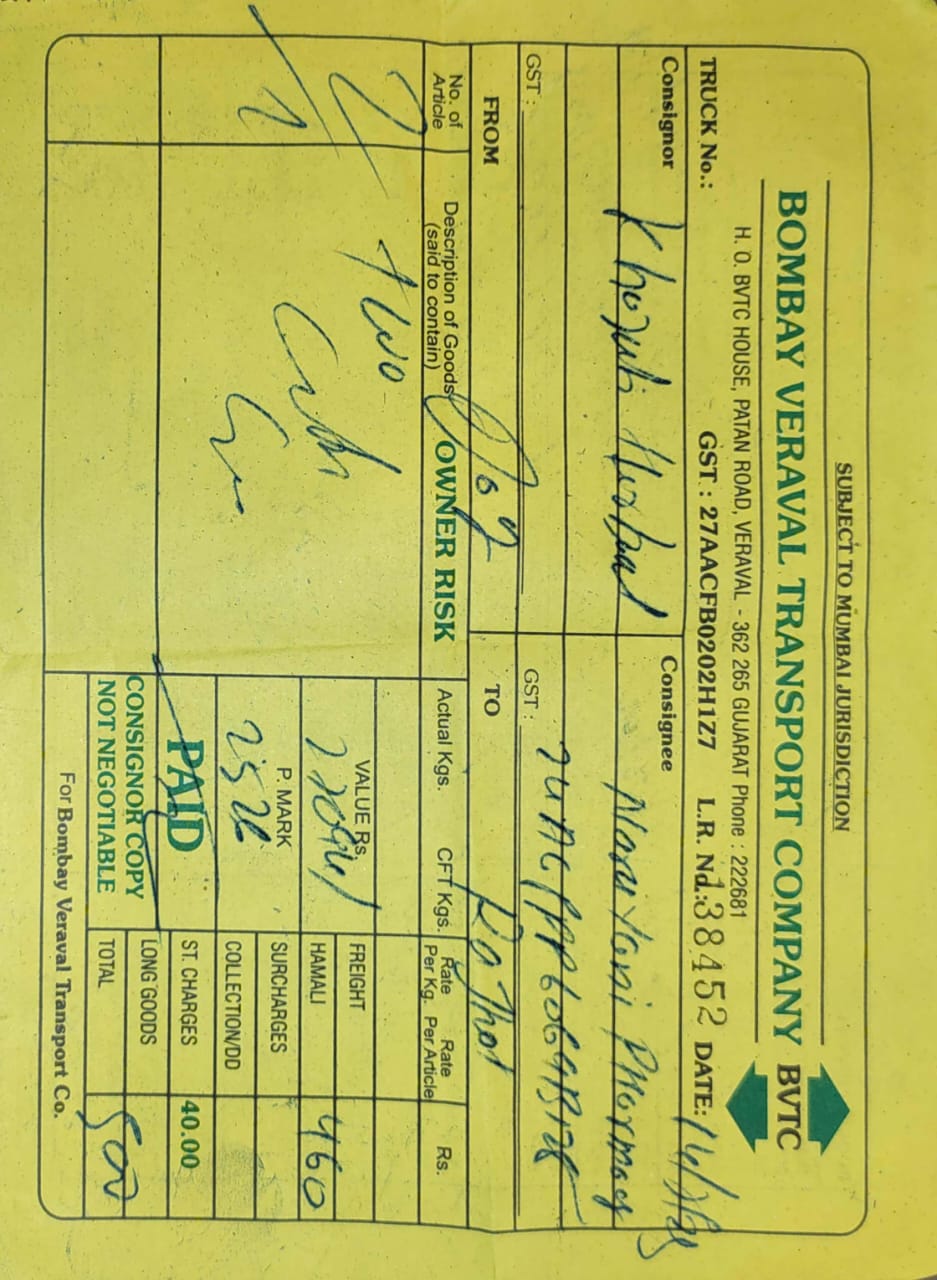 SUBJECT TO MUMBAI JURISDICTION
BOMBAY VERAVAL TRANSPORT COMPANY BVTC
H. O. BVTC HOUSE, PATAN ROAD, VERAVAL - 362 265 GUJARAT Phone : 222681
TRUCK No.: GST : 27AACFB0202H1Z7 L.R. No.: 138452 DATE:
Consignor Consignee
GST : GST :
FROM TO
No. of Article Description of Goods (said to contain) OWNER RISK Actual Kgs. CFT Kgs. Rate Per Kg. Rate Per Article Rs.
two
VALUE Rs. FREIGHT
HAMALI 460
P. MARK SURCHARGES
2526 COLLECTION/DD
PAID ST. CHARGES 40.00
CONSIGNOR COPY LONG GOODS
NOT NEGOTIABLE TOTAL 500
For Bombay Veraval Transport Co.